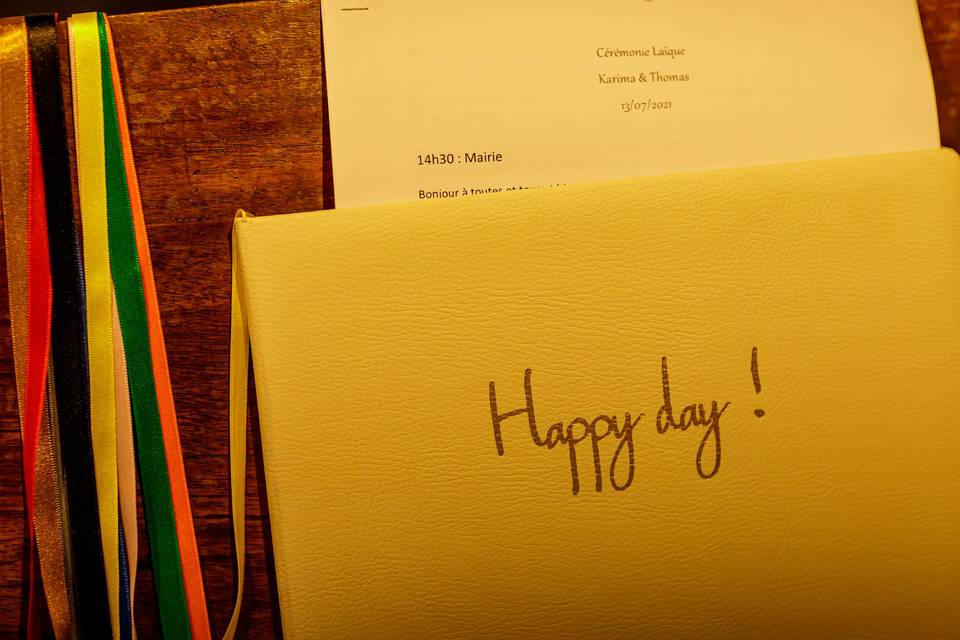 Cérémonie Laïque
Karima & Thomas
13/07/2021
14h30 : Mairie
Bonjour à toutes et
Happy day !